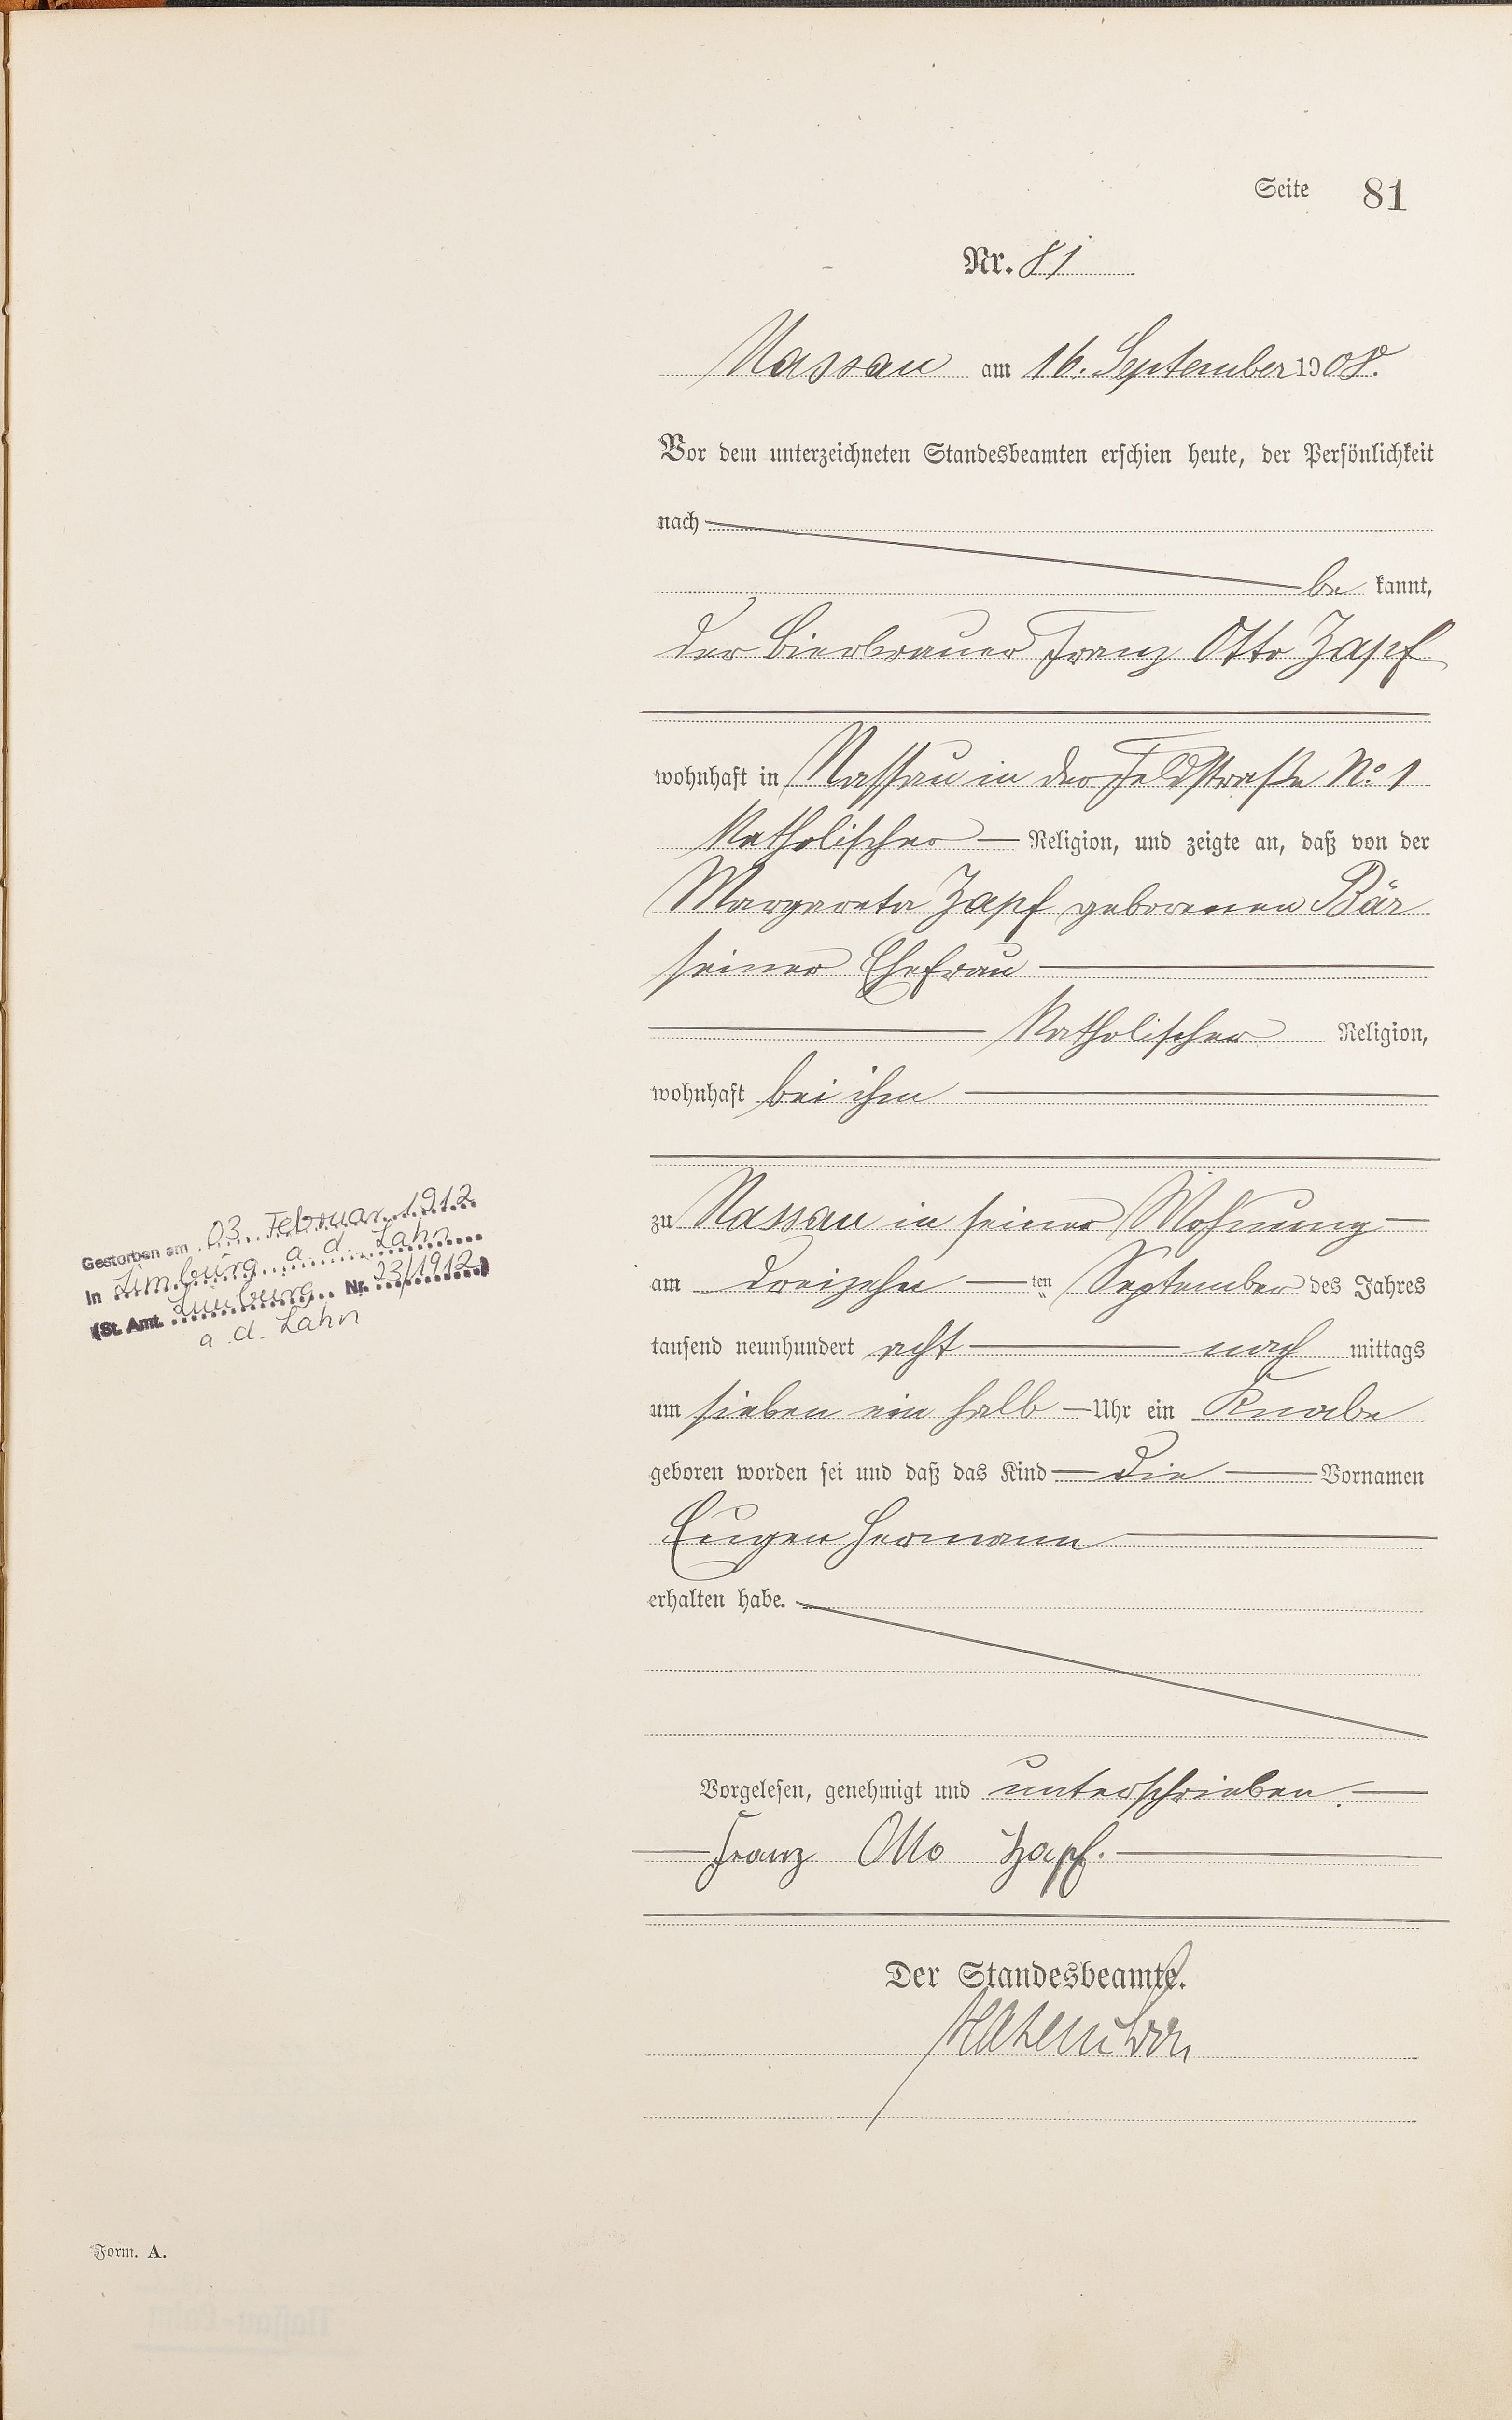 Seite 81
Nr. 81
Nassau am 16. September 1908.
Vor dem unterzeichneten Standesbeamten erschien heute, der Persönlichkeit
nach
be kannt,
der Bierbrauer Franz Otto Zapf
wohnhaft in Nassau in der Feldstraße No. 1
katholischer Religion, und zeigte an, daß von der
Margareta Zapf geborenen Bär
seiner Ehefrau
katholischer Religion,
wohnhaft bei ihm
zu Nassau in seiner Wohnung
am dreizehn ten September des Jahres
tausend neunhundert acht nach mittags
um sieben ein halb Uhr ein Knabe
geboren worden sei und daß das Kind die Vornamen
Eugen Hermann
erhalten habe.
Vorgelesen, genehmigt und unterschrieben.
Franz Otto Zapf.
Der Standesbeamte.
Gestorben am 03. Februar 1912
in Limburg a. d. Lahn
(St. Amt. Limburg Nr. 23/1912)
a. d. Lahn
Form. A.